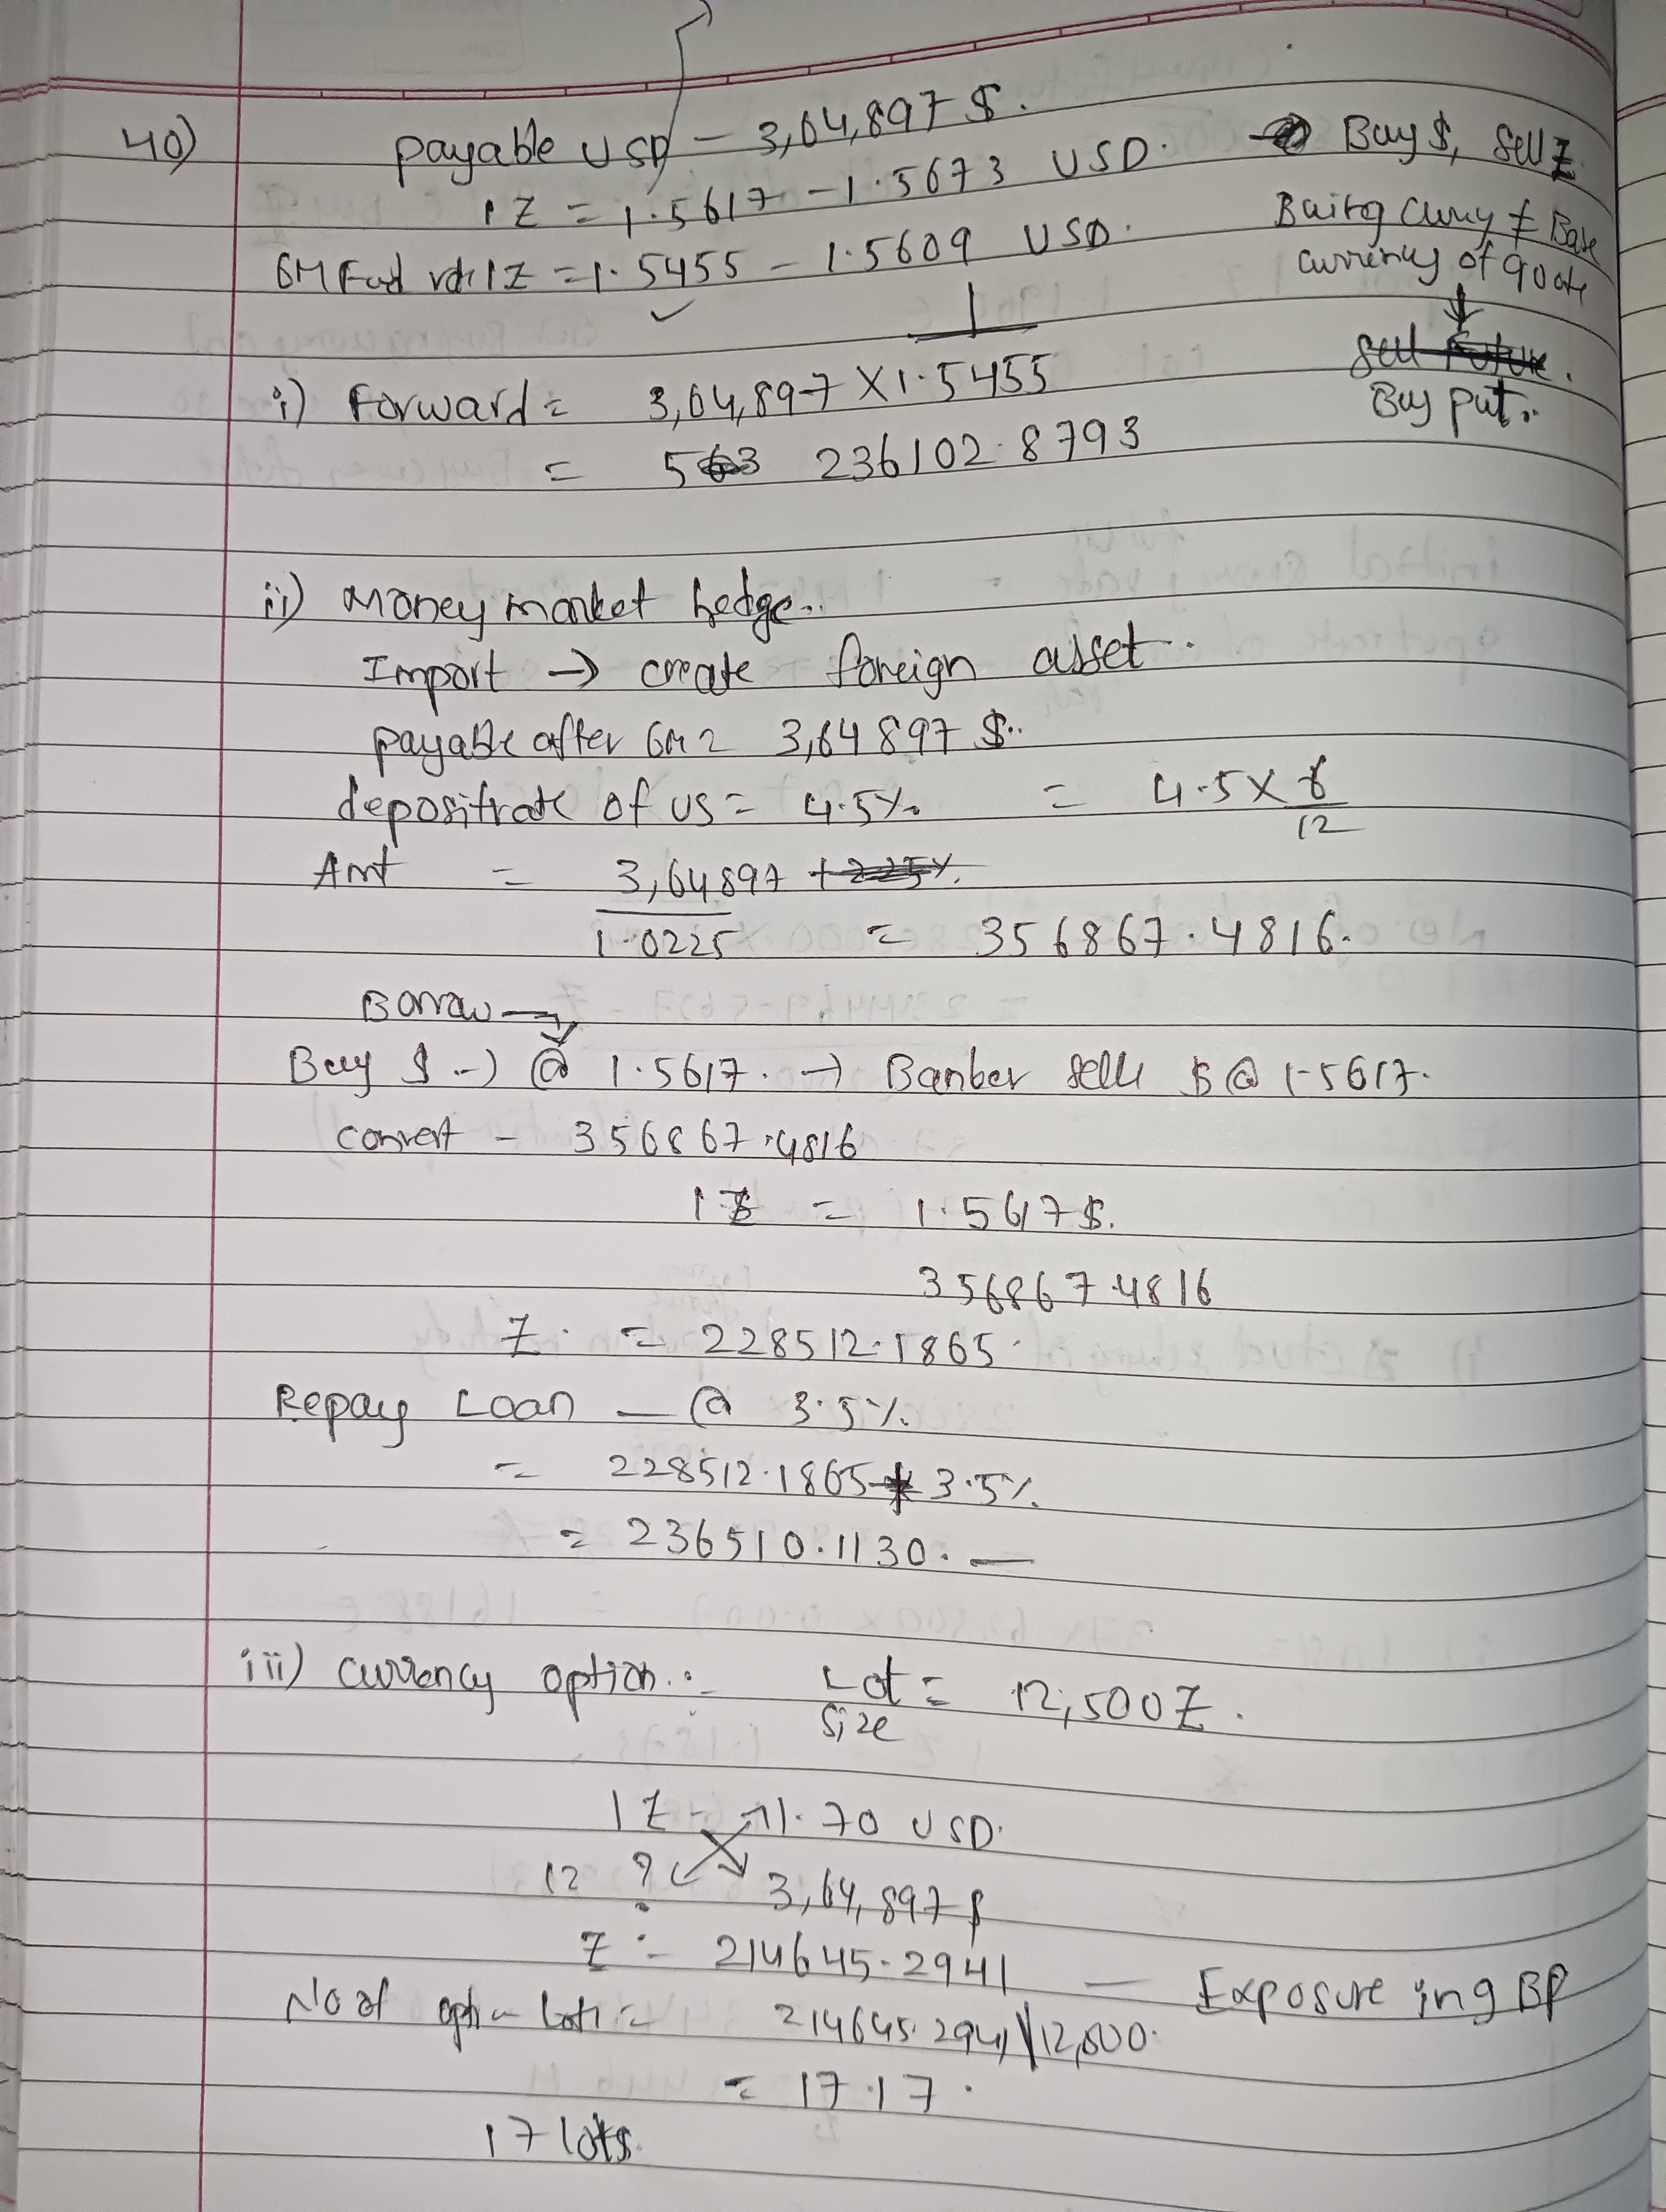 40) payable USD – 3,64,897 $. → Buy $, Sell £.
1 £ = 1.5617 – 1.5673 USD.
6M Fwd rate 1£ = 1.5455 – 1.5609 USD.
Buying curncy ≠ Base
currency of quote
↓
Sell Future.
Buy put..
i) Forward = 3,64,897 X 1.5455
= 563 236102.8793
ii) Money market hedge..
Import → create foreign asset..
payable after 6M = 3,64897 $..
deposit rate of US = 4.5% = 4.5 X 6
12
Amt = 3,64897 + 2.25%.
1.0225 = 356867.4816.
Borrow →
Buy $ → @ 1.5617. → Banker sells $ @ 1.5617.
convert – 356867.4816
1 £ = 1.5617 $.
356867.4816
£. = 228512.1865.
Repay Loan – @ 3.5%.
= 228512.1865 * 3.5%.
= 236510.1130. —
iii) currency option :- Lot = 12,500£.
Size
1 £ – 1.70 USD.
12 ? 3,64,897 $
£ :- 214645.2941 — Exposure in gBP
No of option lots = 214645.2941\12,500.
= 17.17.
17 lots.